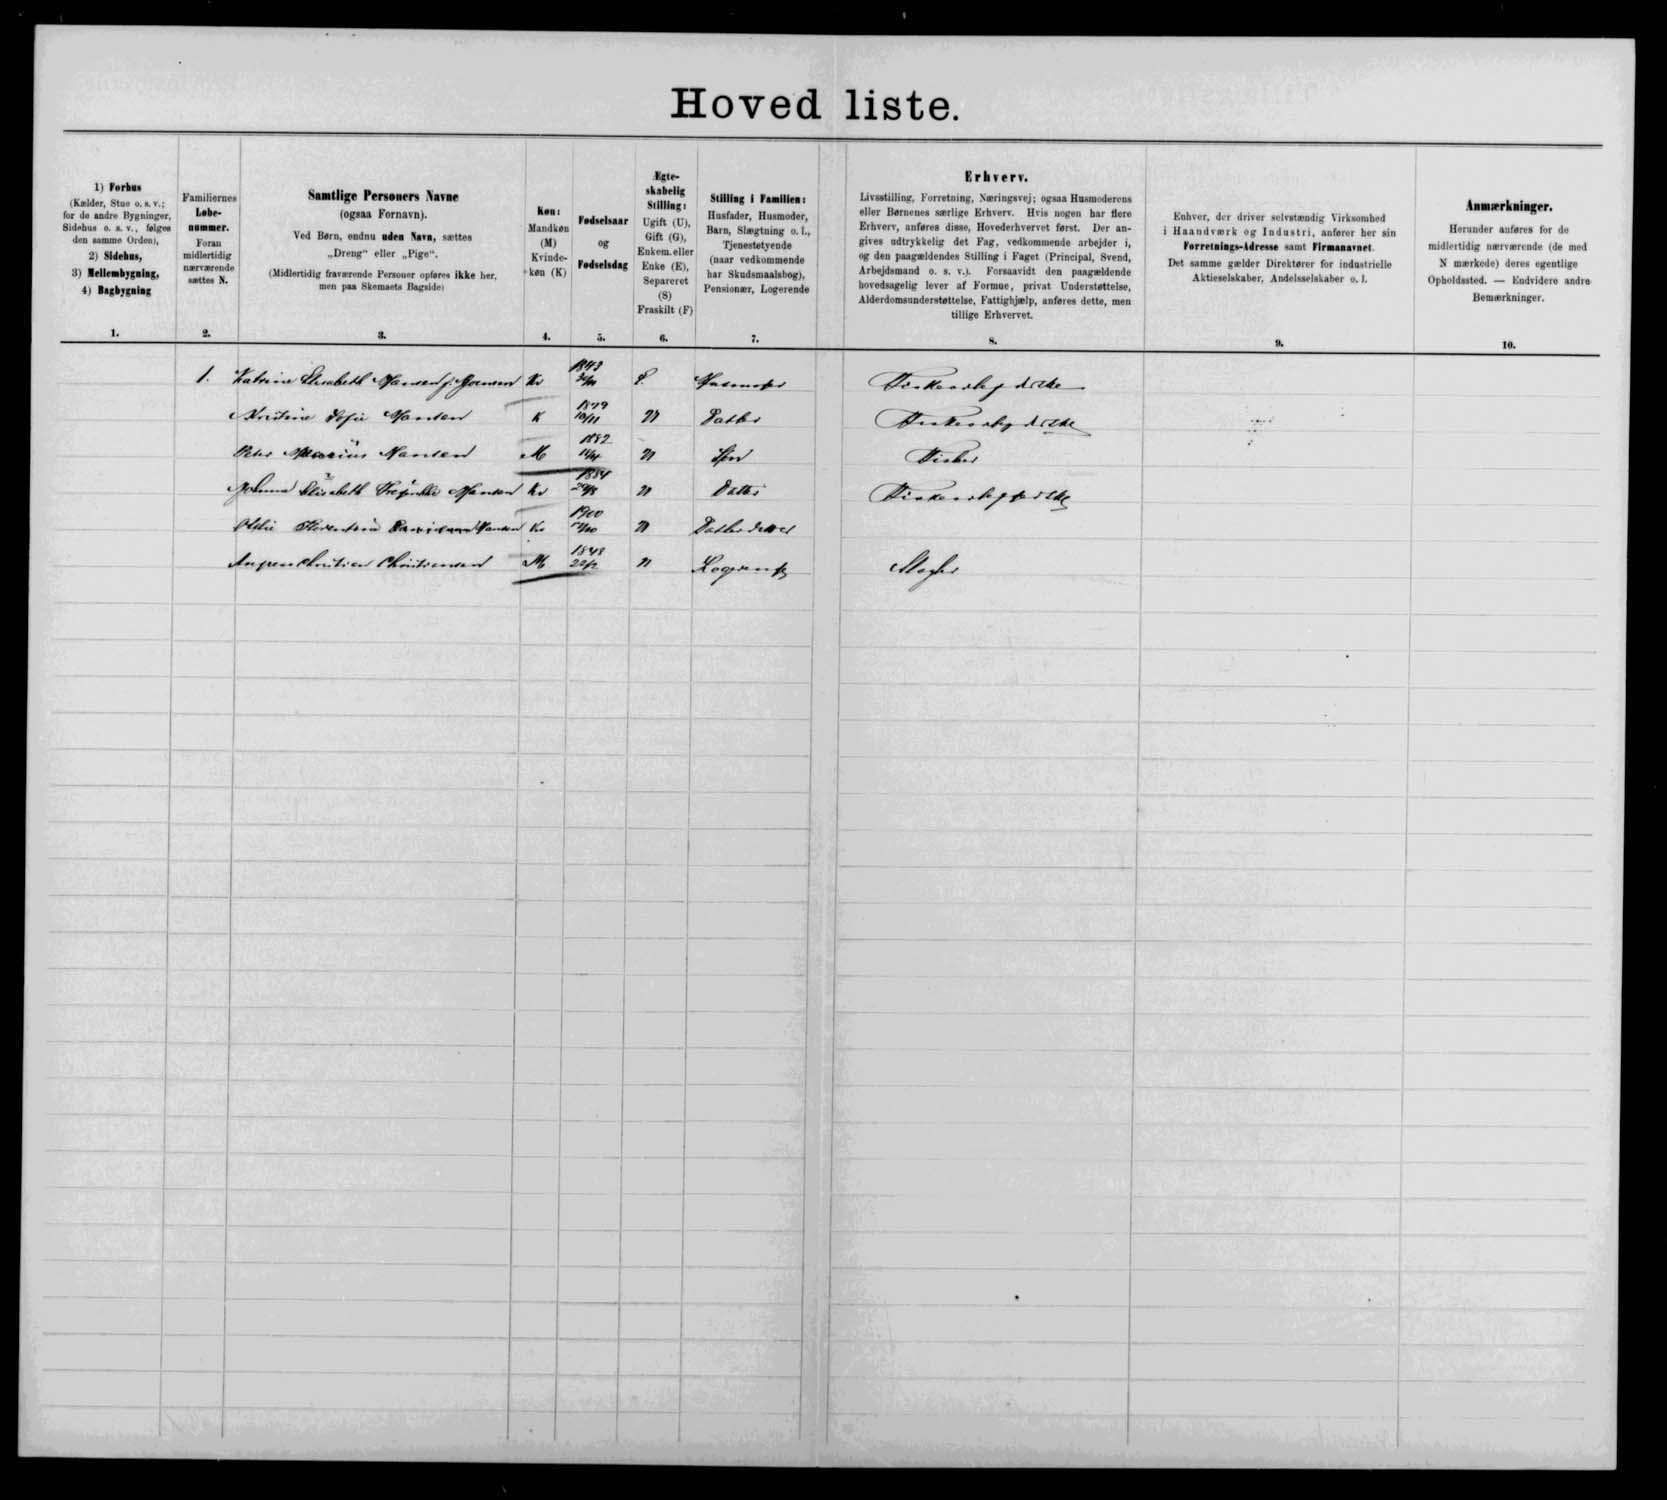 Hoved liste.
1) Forhus
(Kælder, Stue o. s. v.;
for de andre Bygninger,
Sidehus o. s. v., følges
den samme Orden),
2) Sidehus,
3) Mellembygning,
4) Bagbygning
1.
Familiernes
Løbe-
nummer.
Foran
midlertidig
nærværende
sættes N.
2.
Samtlige Personers Navne
(ogsaa Fornavn).
Ved Børn, endnu uden Navn, sættes
„Dreng“ eller „Pige“.
(Midlertidig fraværende Personer opføres ikke her,
men paa Skemaets Bagside)
3.
Køn:
Mandkøn
(M)
Kvinde-
køn (K)
4.
Fødselsaar
og
Fødselsdag
5.
Ægte-
skabelig
Stilling:
Ugift (U),
Gift (G),
Enkem. eller
Enke (E),
Separeret
(S)
Fraskilt (F)
6.
Stilling i Familien:
Husfader, Husmoder,
Barn, Slægtning o. l.,
Tjenestetyende
(naar vedkommende
har Skudsmaalsbog),
Pensionær, Logerende
7.
Erhverv.
Livsstilling, Forretning, Næringsvej; ogsaa Husmoderens
eller Børnenes særlige Erhverv. Hvis nogen har flere
Erhverv, anføres disse, Hovederhvervet først. Der an-
gives udtrykkelig det Fag, vedkommende arbejder i,
og den paagældendes Stilling i Faget (Principal, Svend,
Arbejdsmand o. s. v.). Forsaavidt den paagældende
hovedsagelig lever af Formue, privat Understøttelse,
Alderdomsunderstøttelse, Fattighjælp, anføres dette, men
tillige Erhvervet.
8.
Enhver, der driver selvstændig Virksomhed
i Haandværk og Industri, anfører her sin
Forretnings-Adresse samt Firmanavnet.
Det samme gælder Direktører for industrielle
Aktieselskaber, Andelsselskaber o. l.
9.
Anmærkninger.
Herunder anføres for de
midlertidig nærværende (de med
N mærkede) deres egentlige
Opholdssted. — Endvidere andre
Bemærkninger.
10.
1. Katrine Elisabeth Hansen f. Kv 1843 E.
Kristine Sofie Hansen K 1879 10/11 U Datter
Peter Marius Hansen M 1882 U Søn Fisker
Elisabeth Hansen Kv 1884 U Datter
Hansen Kv 1900 U Datterdatter
Christian Christensen M 1848 22/2 U